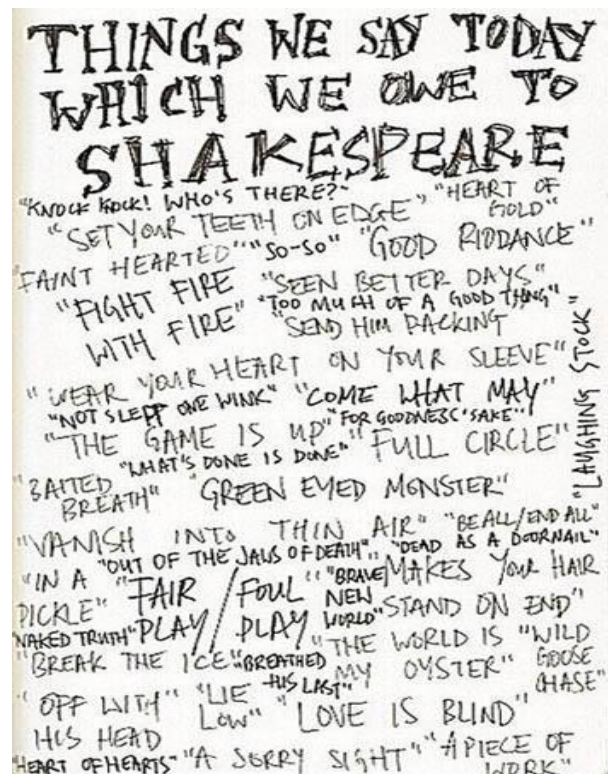 THINGS WE SAY TODAY
WHICH WE OWE TO
SHAKESPEARE
"KNOCK KOCK! WHO'S THERE?" "HEART OF GOLD"
"SET YOUR TEETH ON EDGE"
"FAINT HEARTED" "SO-SO" "GOOD RIDDANCE"
"FIGHT FIRE WITH FIRE"
"SEEN BETTER DAYS"
"TOO MUCH OF A GOOD THING"
"SEND HIM PACKING
"WEAR YOUR HEART ON YOUR SLEEVE"
"LAUGHING STOCK"
"NOT SLEPT ONE WINK" "COME WHAT MAY"
"THE GAME IS UP" "FOR GOODNESS'SAKE"
"WHAT'S DONE IS DONE" "FULL CIRCLE"
"BAITED BREATH" "GREEN EYED MONSTER"
"VANISH INTO THIN AIR" "BE ALL/END ALL"
"OUT OF THE JAWS OF DEATH" "DEAD AS A DOORNAIL"
"IN A PICKLE"
"FAIR PLAY/FOUL PLAY"
"BRAVE NEW WORLD"
MAKES YOUR HAIR STAND ON END"
NAKED TRUTH"
"BREAK THE ICE" "BREATHED HIS LAST"
"THE WORLD IS MY OYSTER" "WILD GOOSE CHASE"
"OFF WITH HIS HEAD
"LIE LOW" "LOVE IS BLIND"
"HEART OF HEARTS" "A SORRY SIGHT" "A PIECE OF WORK"